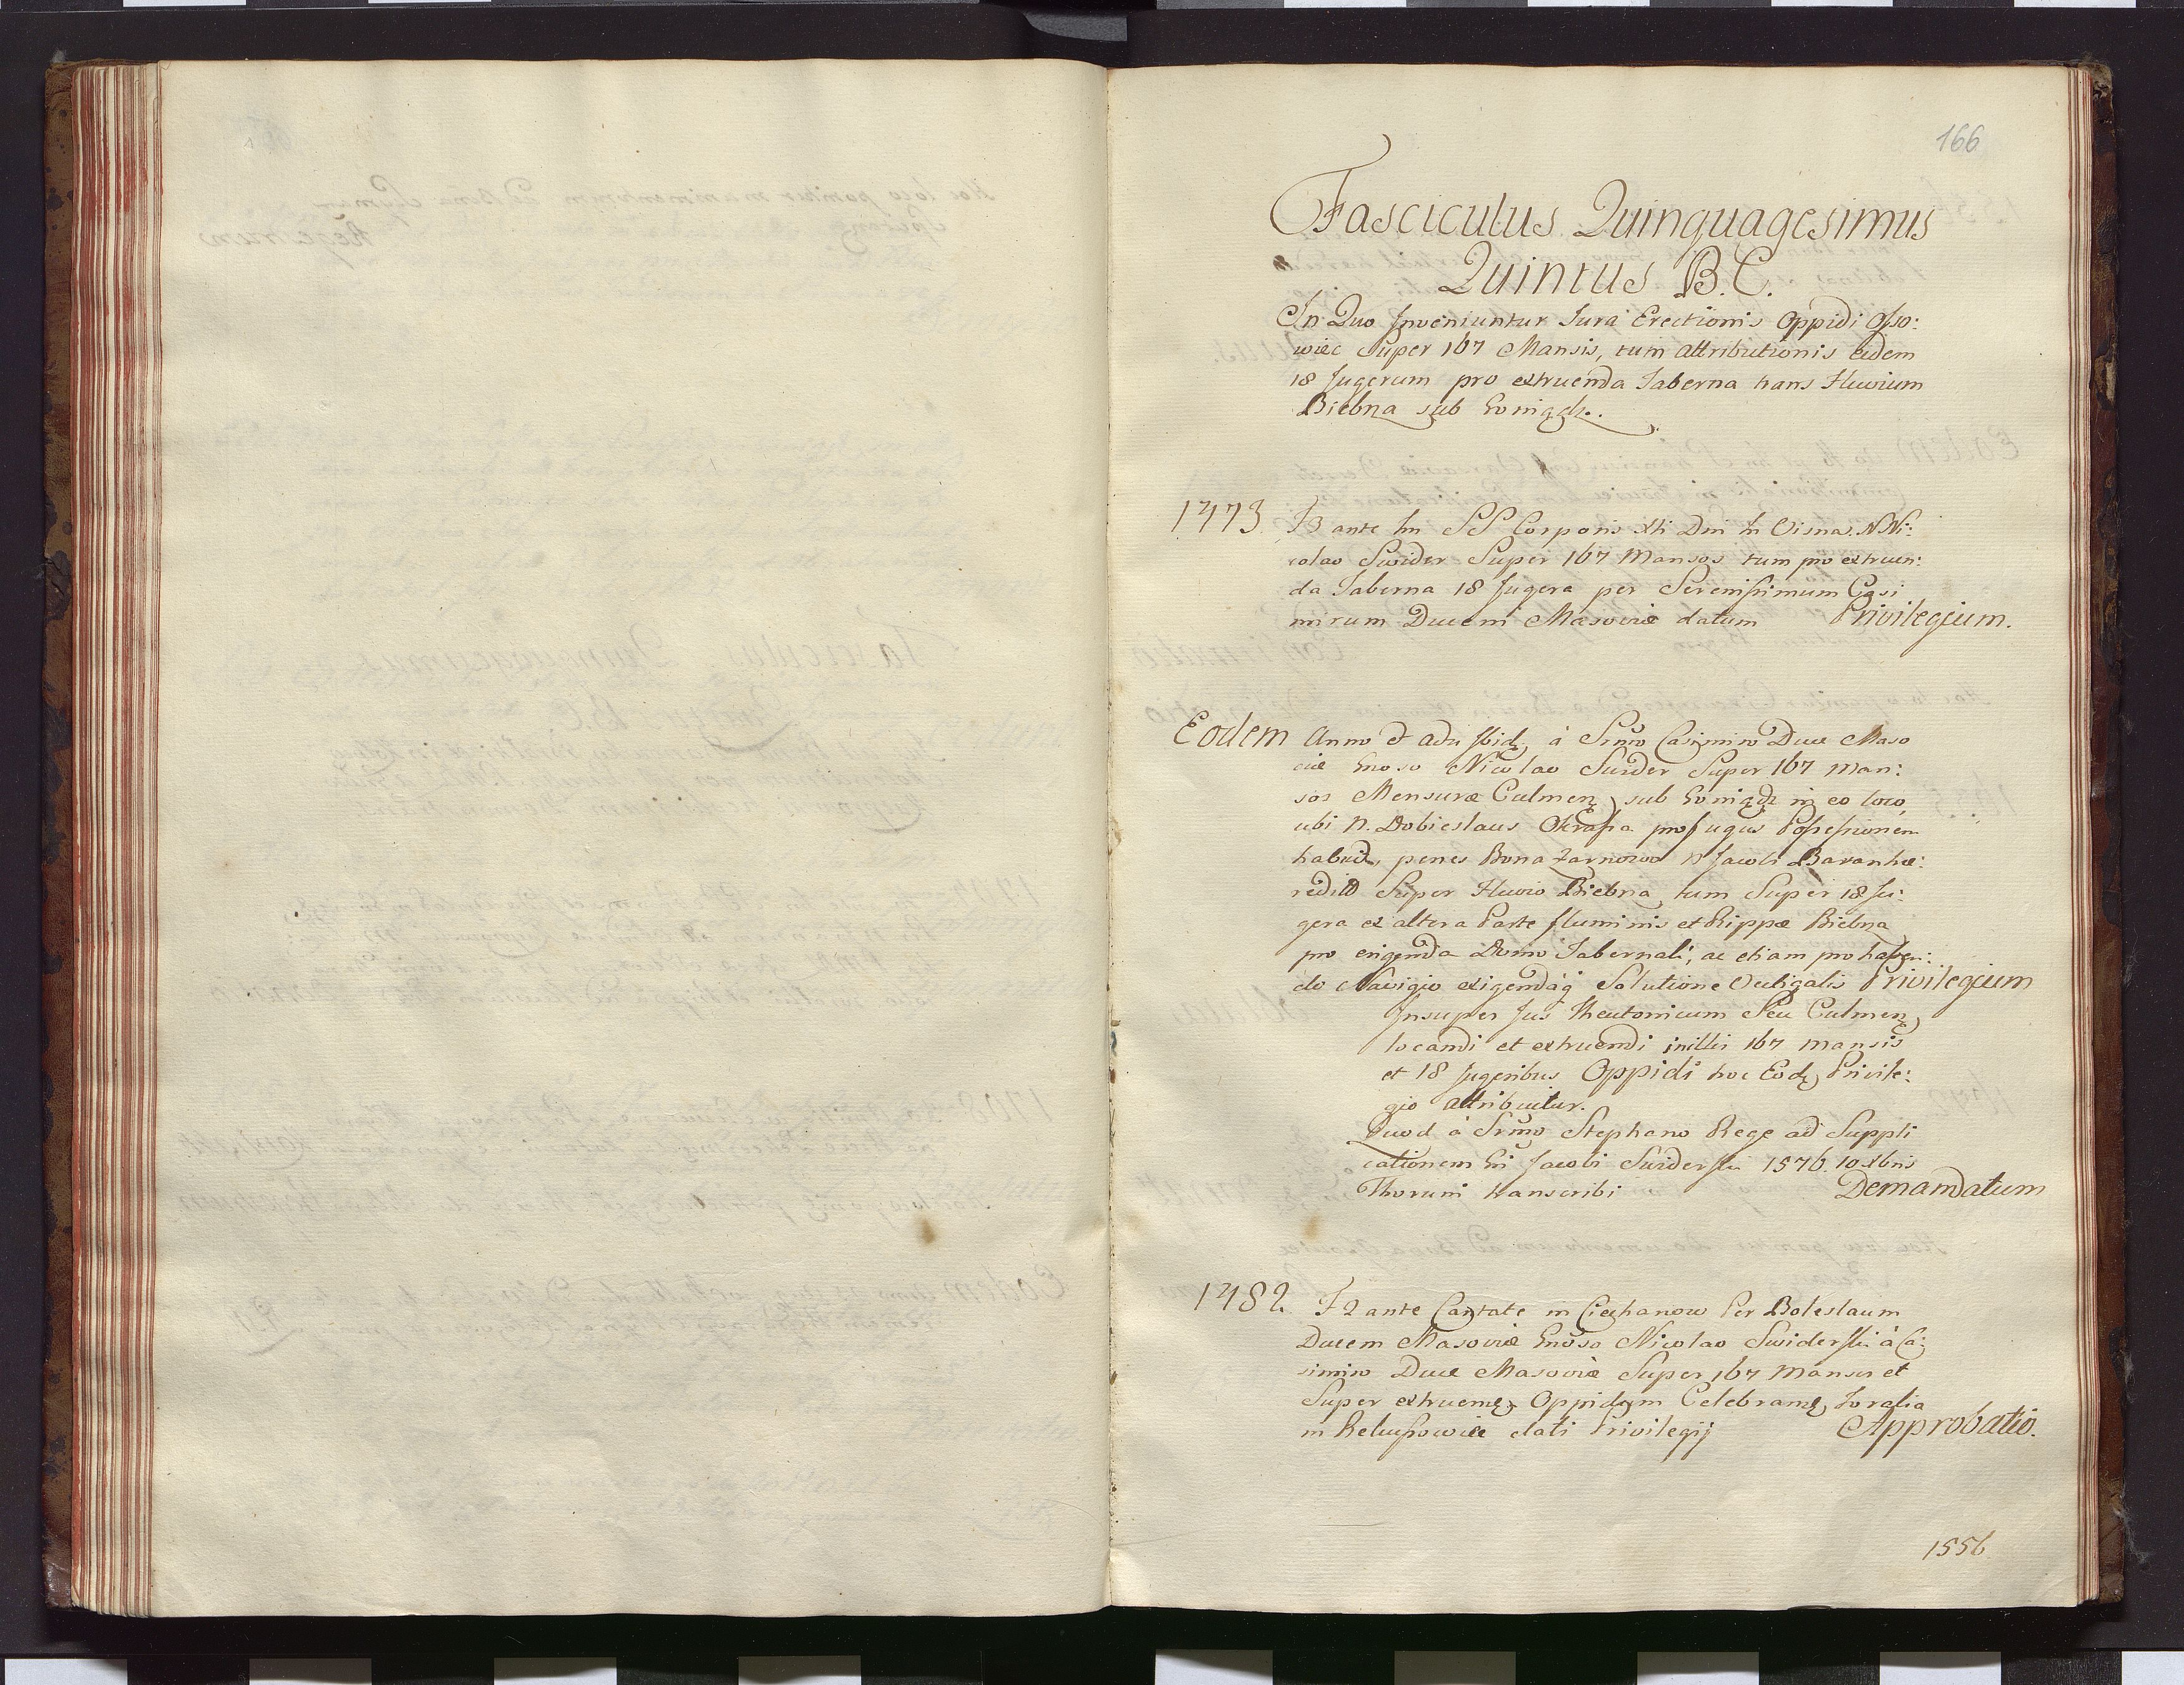 166
Fasciculus Quinquagesimus
Quintus B.C.
In Quo Inveniuntur Jura Erectionis Oppidi Osso:
wiec Super 167 Mansis, tum attributionis eidem
18 Jugerum pro extruenda Taberna trans Fluvium
Biebrza sub Goniądz.
1473 F 3 ante fm SS Corporis Xti Dni in Visna. N Ni:
colao Swider Super 167 Mansos tum pro extruen:
da Taberna 18 Jugera per Serenissimum Casi
mirum Ducem Masoviæ datum Privilegium.
Eodem Anno et actu ibid, à Srmo Casimiro Duce Maso
viæ Gnoso Nicolao Swider Super 167 man:
sos Mensuræ Culmen, sub Goniądz in eo loco,
ubi N. Dobieslaus Okrassa profugus Possessionem
habuit, penes Bona Zarnowo N Jacobi Baran hæ:
redita Super Fluvio Biebrza, tum Super 18 Ju:
gera ex altera Parte fluminis et Rippæ Biebrza
pro erigenda Domo Tabernali, ac etiam pro haben:
do Navigio exigendaq Solutione Vectigalis Privilegium
Insuper Jus Theutonicum Seu Culmen,
locandi et extruendi in illis 167 mansis
et 18 Jugeribus Oppidi hoc Eod, Privile:
gio attribuitur.
Quod à Srmo Stephano Rege ad Suppli
cationem Gsi Jacobi Swiderski 1576. 10 Xbris
Thoruni transcribi Demandatum
1482. F 2 ante Cantate in Ciechanow Per Boleslaum
Ducem Masoviæ Gnoso Nicolao Swiderski à Ca:
simiro Duce Masoviæ Super 167 Mansos et
Super extruend, Oppidum Celebrand, Foralia
in dati Privilegij Approbatio.
1556